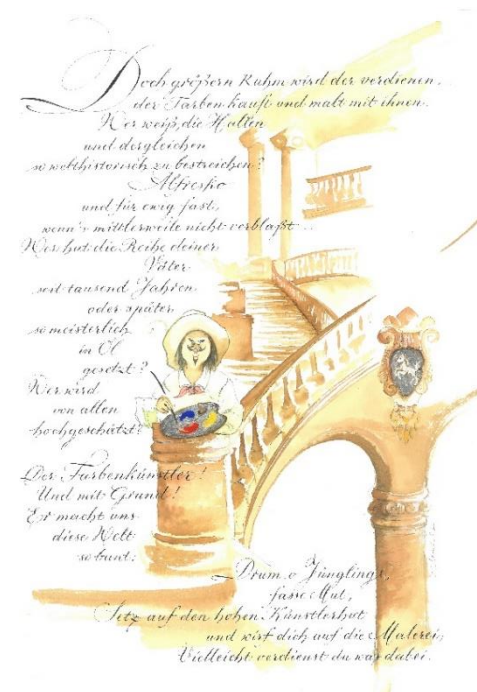 Doch größern Ruhm wird der verdienen,
der Farben kauft und malt mit ihnen.
Wer weiß, die Hallen
und dergleichen
so welthistorisch zu bestreichen?
Alfresko
und für ewig fast,
wenn's mittlerweile nicht verblaßt ...
Wer hat die Reihe deiner
Väter
seit tausend Jahren
oder später
so meisterlich
in Öl
gesetzt?
Wer wird
von allen
hochgeschätzt?
Der Farbenkünstler!
Und mit Grund!
Er macht uns
diese Welt
so bunt;
Drum, o Jüngling,
fasse Mut,
Setz auf den hohen Künstlerhut
und wirf dich auf die Malerei,
Vielleicht verdienst du was dabei.